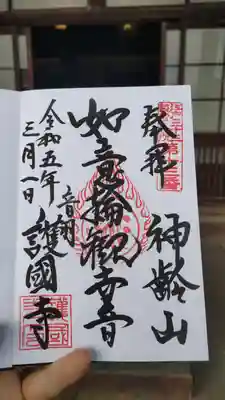 奉拝
神齢山
如意輪観世音
音羽
護國寺
令和五年
三月一日